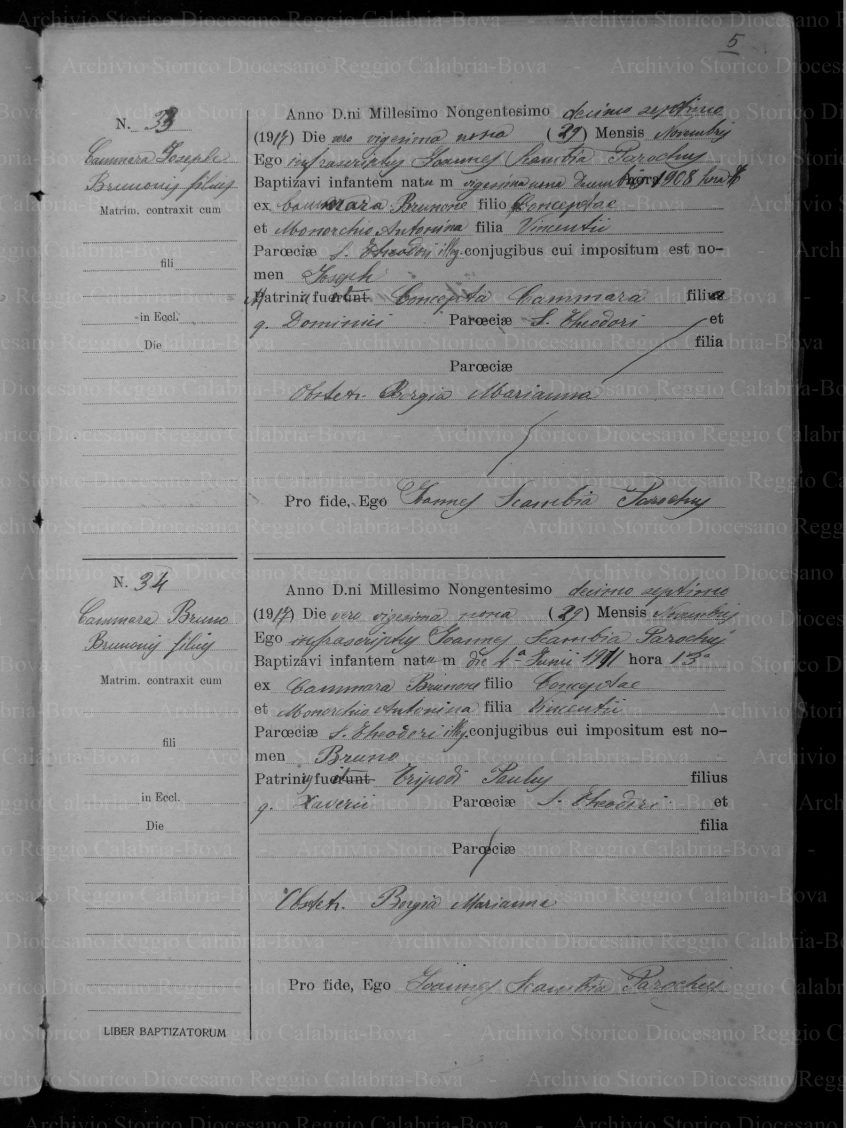 5
N. 33
Cammara Joseph
Brunonis filius
Matrim. contraxit cum
fili
in Eccl.
Die
Anno D.ni Millesimo Nongentesimo decimo septimo
(1917) Die vero vigesima nona (29) Mensis Novembris
Ego infrascriptus Joannes Scambia Parochus
Baptizavi infantem natu m vigesima una 1908 hora
ex Cammara Brunone filio Conceptae
et Monorchio Antonina filia Vincentii
Parœciæ S. Theodori illeg. conjugibus cui impositum est no-
men Joseph
Patrini fuerunt Concepta Cammara filia
q. Dominici Parœciæ S. Theodori et
filia
Parœciæ
Obstetr. Borgia Marianna
Pro fide, Ego Joannes Scambia Parochus
N. 34
Cammara Bruno
Brunonis filius
Matrim. contraxit cum
fili
in Eccl.
Die
Anno D.ni Millesimo Nongentesimo decimo septimo
(1917) Die vero vigesima nona (29) Mensis Novembris
Ego infrascriptus Joannes Scambia Parochus
Baptizavi infantem natu m die 4a Junii 1911 hora 13
ex Cammara Brunone filio Conceptae
et Monorchio Antonina filia Vincentii
Parœciæ S. Theodori illeg. conjugibus cui impositum est no-
men Bruno
Patrinus fuit Tripodi Paulus filius
q. Xaverii Parœciæ S. Theodori et
filia
Parœciæ
Obstetr. Borgia Marianna
Pro fide, Ego Joannes Scambia Parochus
LIBER BAPTIZATORUM
Archivio Storico Diocesano Reggio Calabria-Bova